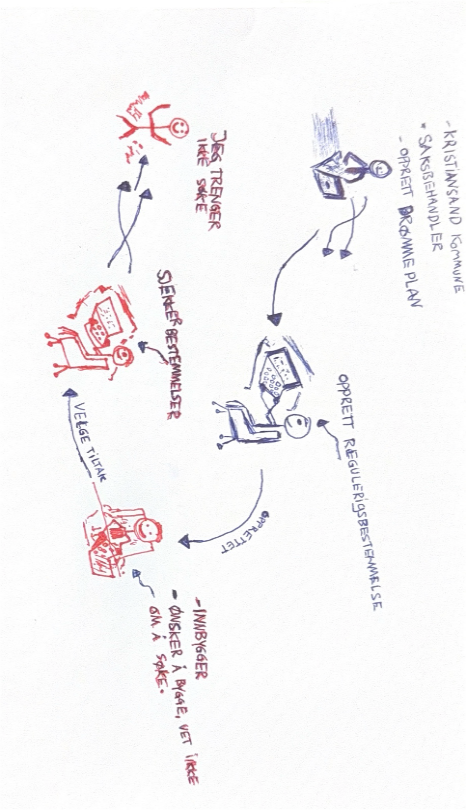 - KRISTIANSAND KOMMUNE
• SAKSBEHANDLER
- OPPRETT DRØMMEPLAN
OPPRETT RÆGULERIGSBESTEMMELSE
OPPRETTET
- INNBYGGER
- ØNSKER Å BYGGE, VET IKKE
OM Å SØKE.
VELGE TILTAK
SJEKKER BESTEMMELSER
JEG TRENGER
IKKE SØKE